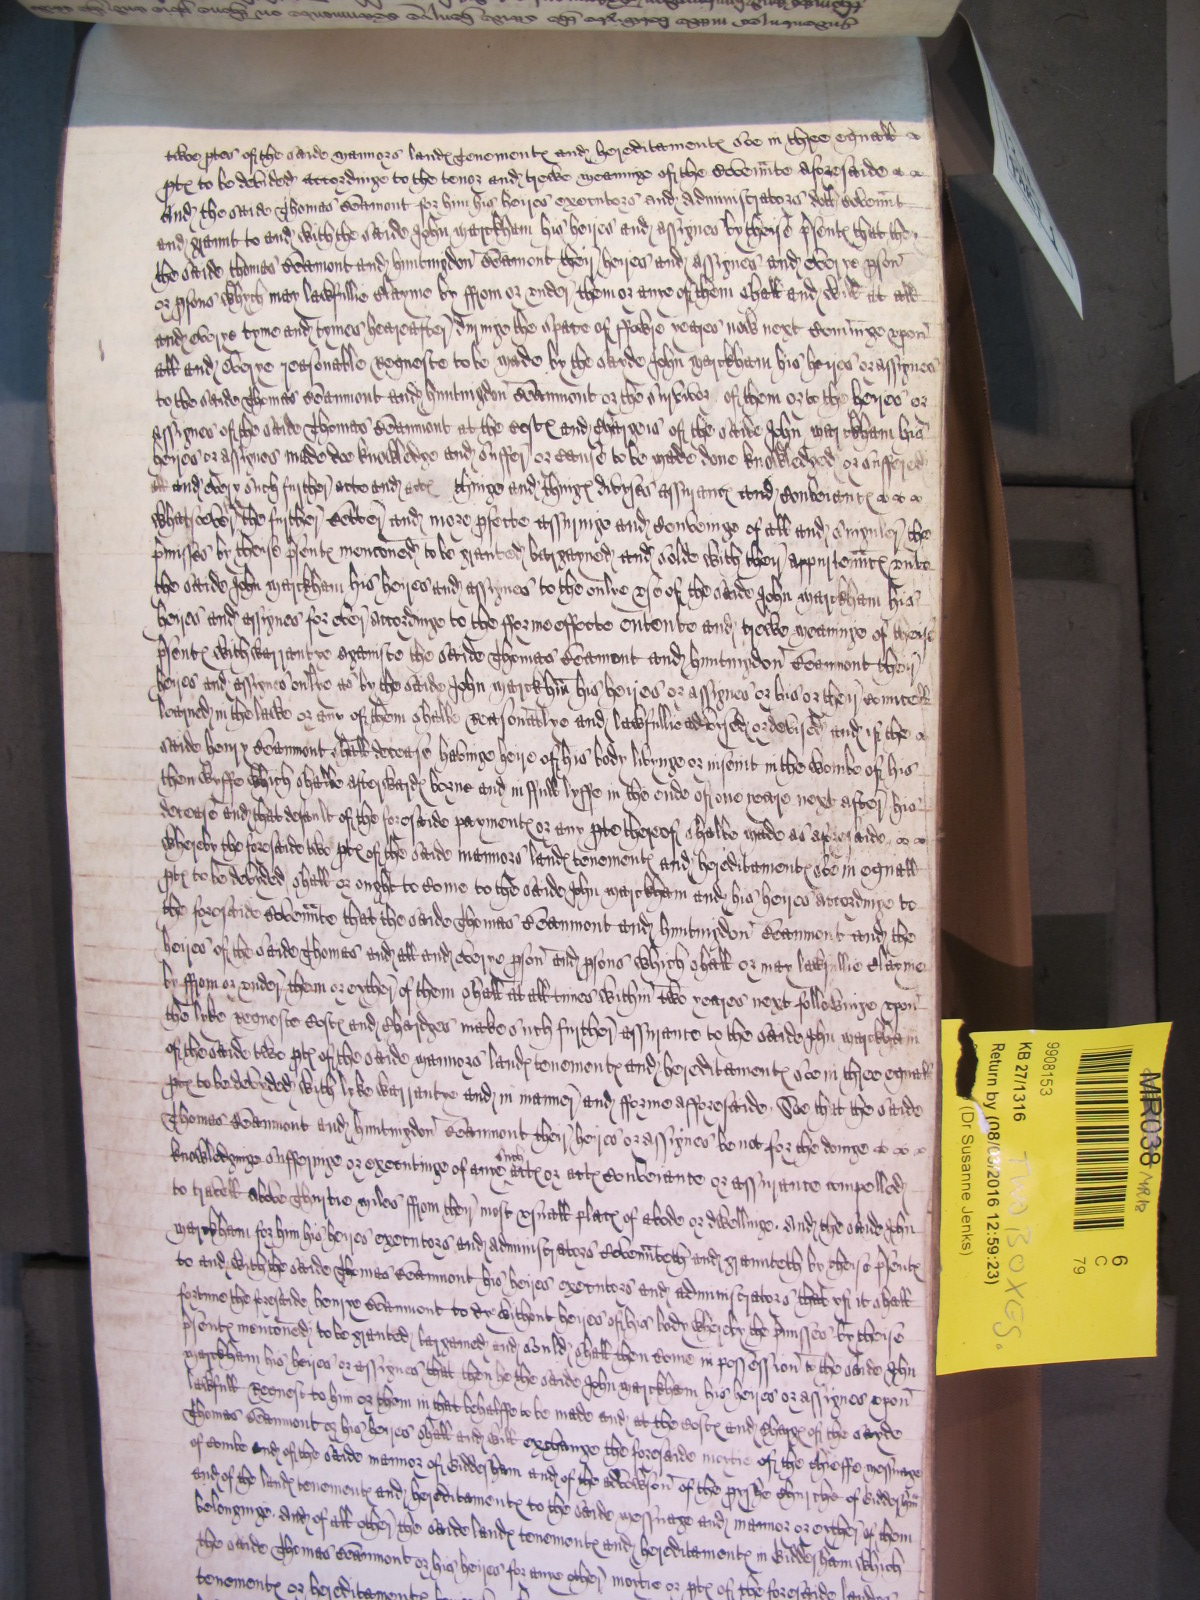 two ptes of the saide mannors landes tenementes and hereditamentes soe in three equall
ptes to be devided accordinge to the tenor and trewe meaninge of the Covennte aforesaide
And the saide Thomas Beamont for him his heires executors and administrators doth Covennt
and graunt to and with the saide John Marckham his heires and assignes by theise psentes that they
the saide Thomas Beamont and Huntingdon Beamont their heires and assignes and everye pson
or psons which may lawfullie clayme by ffrom or under them or anye of them shall and will at all
and everye tyme and tymes heareafter duringe the space of yeares now next Cominge upon
all and everye reasonable Requeste to be made by the sayde John Marckham his heires or assignes
to the saide Thomas Beaumont and Huntingdon Beaumont or the survivor of them or to the heires or
assignes of the saide Thomas Beaumont at the Costes and Chargeis of the saide John Marckham his
heires or assignes made doe knowledge and suffer or cause to be made done knowledged or suffered
and every such further acte and actes thinge and thinges devises assurances and Conveiances
whatsoever the further better and more pfecte assuringe and Conveinge of all and singuler the
pmisses by theise psentes mencioned to be graunted bargayned and solde with their apprtenances unto
the saide John Marckham his heires and assignes to the onlye use of the saide John Marckham his
heires and assignes for ever accordinge to the fforme effecte entente and trewe meaninge of theise
psentes with warrantye againste the saide Thomas Beamont and Huntingdon Beaumont their
heires and assignes onlye as by the saide John Marckham his heires or assignes or his or their Councell
learned in the lawe or any of them shalbe reasonablye and lawfullie advised or devised and if the
saide Henry Beaumont shall decease havinge heire of his body livynge or in the wombe of his
then wyffe which shalbe afterwardes borne and in full lyffe in the ende of one yeare next after his
decease and that default of the foresaide paymentes or any pte thereof shalbe made as aforesaide
whereby the foresaide two ptes of the saide mannors landes tenementes and hereditamentes soe in equall
ptes to be devided shall or ought to Come to the saide John Marckham and his heires accordinge to
the foresaide Covennte that the saide Thomas Beaumont and Huntingdon Beaumont and the
heires of the saide Thomas and all and everye pson and psons which shall or may lawfullie clayme
by ffrom or under them or eyther of them shall at all times within two yeares next followinge upon
the lyke Requeste Costes and Chardges make such further assurance to the saide John Marckham
of the saide two ptes of the saide mannors landes tenementes and hereditamentes soe in three equall
ptes to be devyded with lyke warrantye and in manner and fforme afforesaide. Soe that the saide
Thomas Beaumont and Huntingdon Beaumont their heires or assignes be not for the doinge
knowledginge sufferinge or executinge of anye such acte or actes Conveiance or assurance compelled
to travell above Thirtie miles ffrom their most usuall places of abode or dwellinge. And the saide John
Marckham for him his heires executors and administrators Covennteth and graunteth by theise psentes
to and with the saide Thomas Beaumont his heires executors and administrators that yf it shall
fortune the foresaide Henrye Beaumont to dye without heires of his body whereby the pmisses by theise
psentes mencioned to be graunted bargained and sould shall then Come in possession to the saide John
Marckham his heires or assignes that then he the saide John Marckham his heires or assignes upon
lawfull Request to him or them in that behalffe to be made and at the Costes and Charges of the sayde
Thomas Beaumont or his heires shall and will exchange the foresaide moitie of the chieffe messuage
of Combe and of the saide mannor of Bidderham and of the advowson of the prishe Churche of Bidderham
and of the landes tenementes and hereditamentes to the saide messuage and mannor or eyther of them
belonginge. And of all other the saide landes tenementes and hereditamentes in Bidderham which
the saide Thomas Beaumont or his heires for anye other moitie or ptes of the foresaide landes
tenementes or hereditamentes
MR038
MR18
6
C
79
9908153
KB 27/1316
TWO BOXES.
Return by (08/03/2016 12:59:23)
(Dr Susanne Jenks)